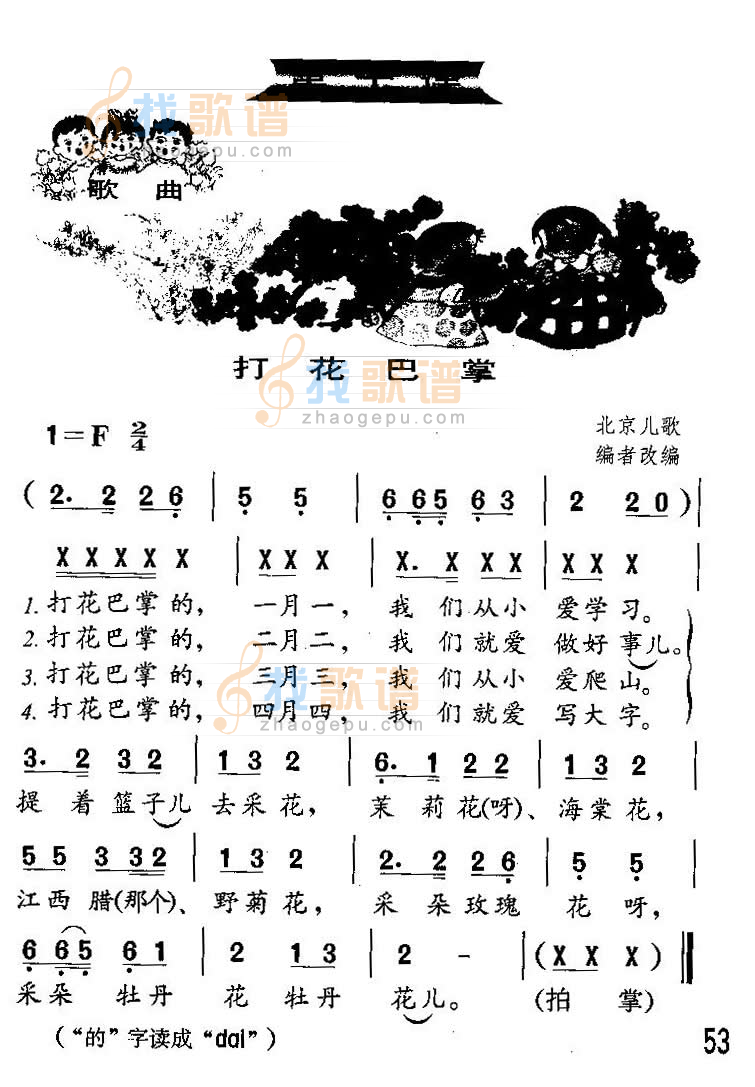 找歌谱
zhaogepu.com
歌曲
找歌谱
打花巴掌
zhaogepu.com
1=F 2/4
北京儿歌
编者改编
( 2. 2 2 6 | 5 5 | 6 6 5 6 3 | 2 2 0 ) |
X X X X X | X X X | X. X X X | X X X |
1.打花巴掌的， 一月一， 我们从小 爱学习。
2.打花巴掌的， 二月二， 我们就爱 做好事儿。
3.打花巴掌的， 三月三， 我们从小 爱爬山。
4.打花巴掌的， 四月四， 我们就爱 写大字。
找歌谱
zhaogepu.com
3. 2 3 2 | 1 3 2 | 6. 1 2 2 | 1 3 2 |
提着篮子儿 去采花， 茉莉花(呀)、 海棠花，
5 5 3 3 2 | 1 3 2 | 2. 2 2 6 | 5 5 |
江西腊(那个)、 野菊花， 采朵玫瑰 花呀，
6 6 5 6 1 | 2 1 3 | 2 - | ( X X X ) ‖
采朵 牡丹 花 牡丹 花儿。 (拍掌)
(“的”字读成“dai”)
53